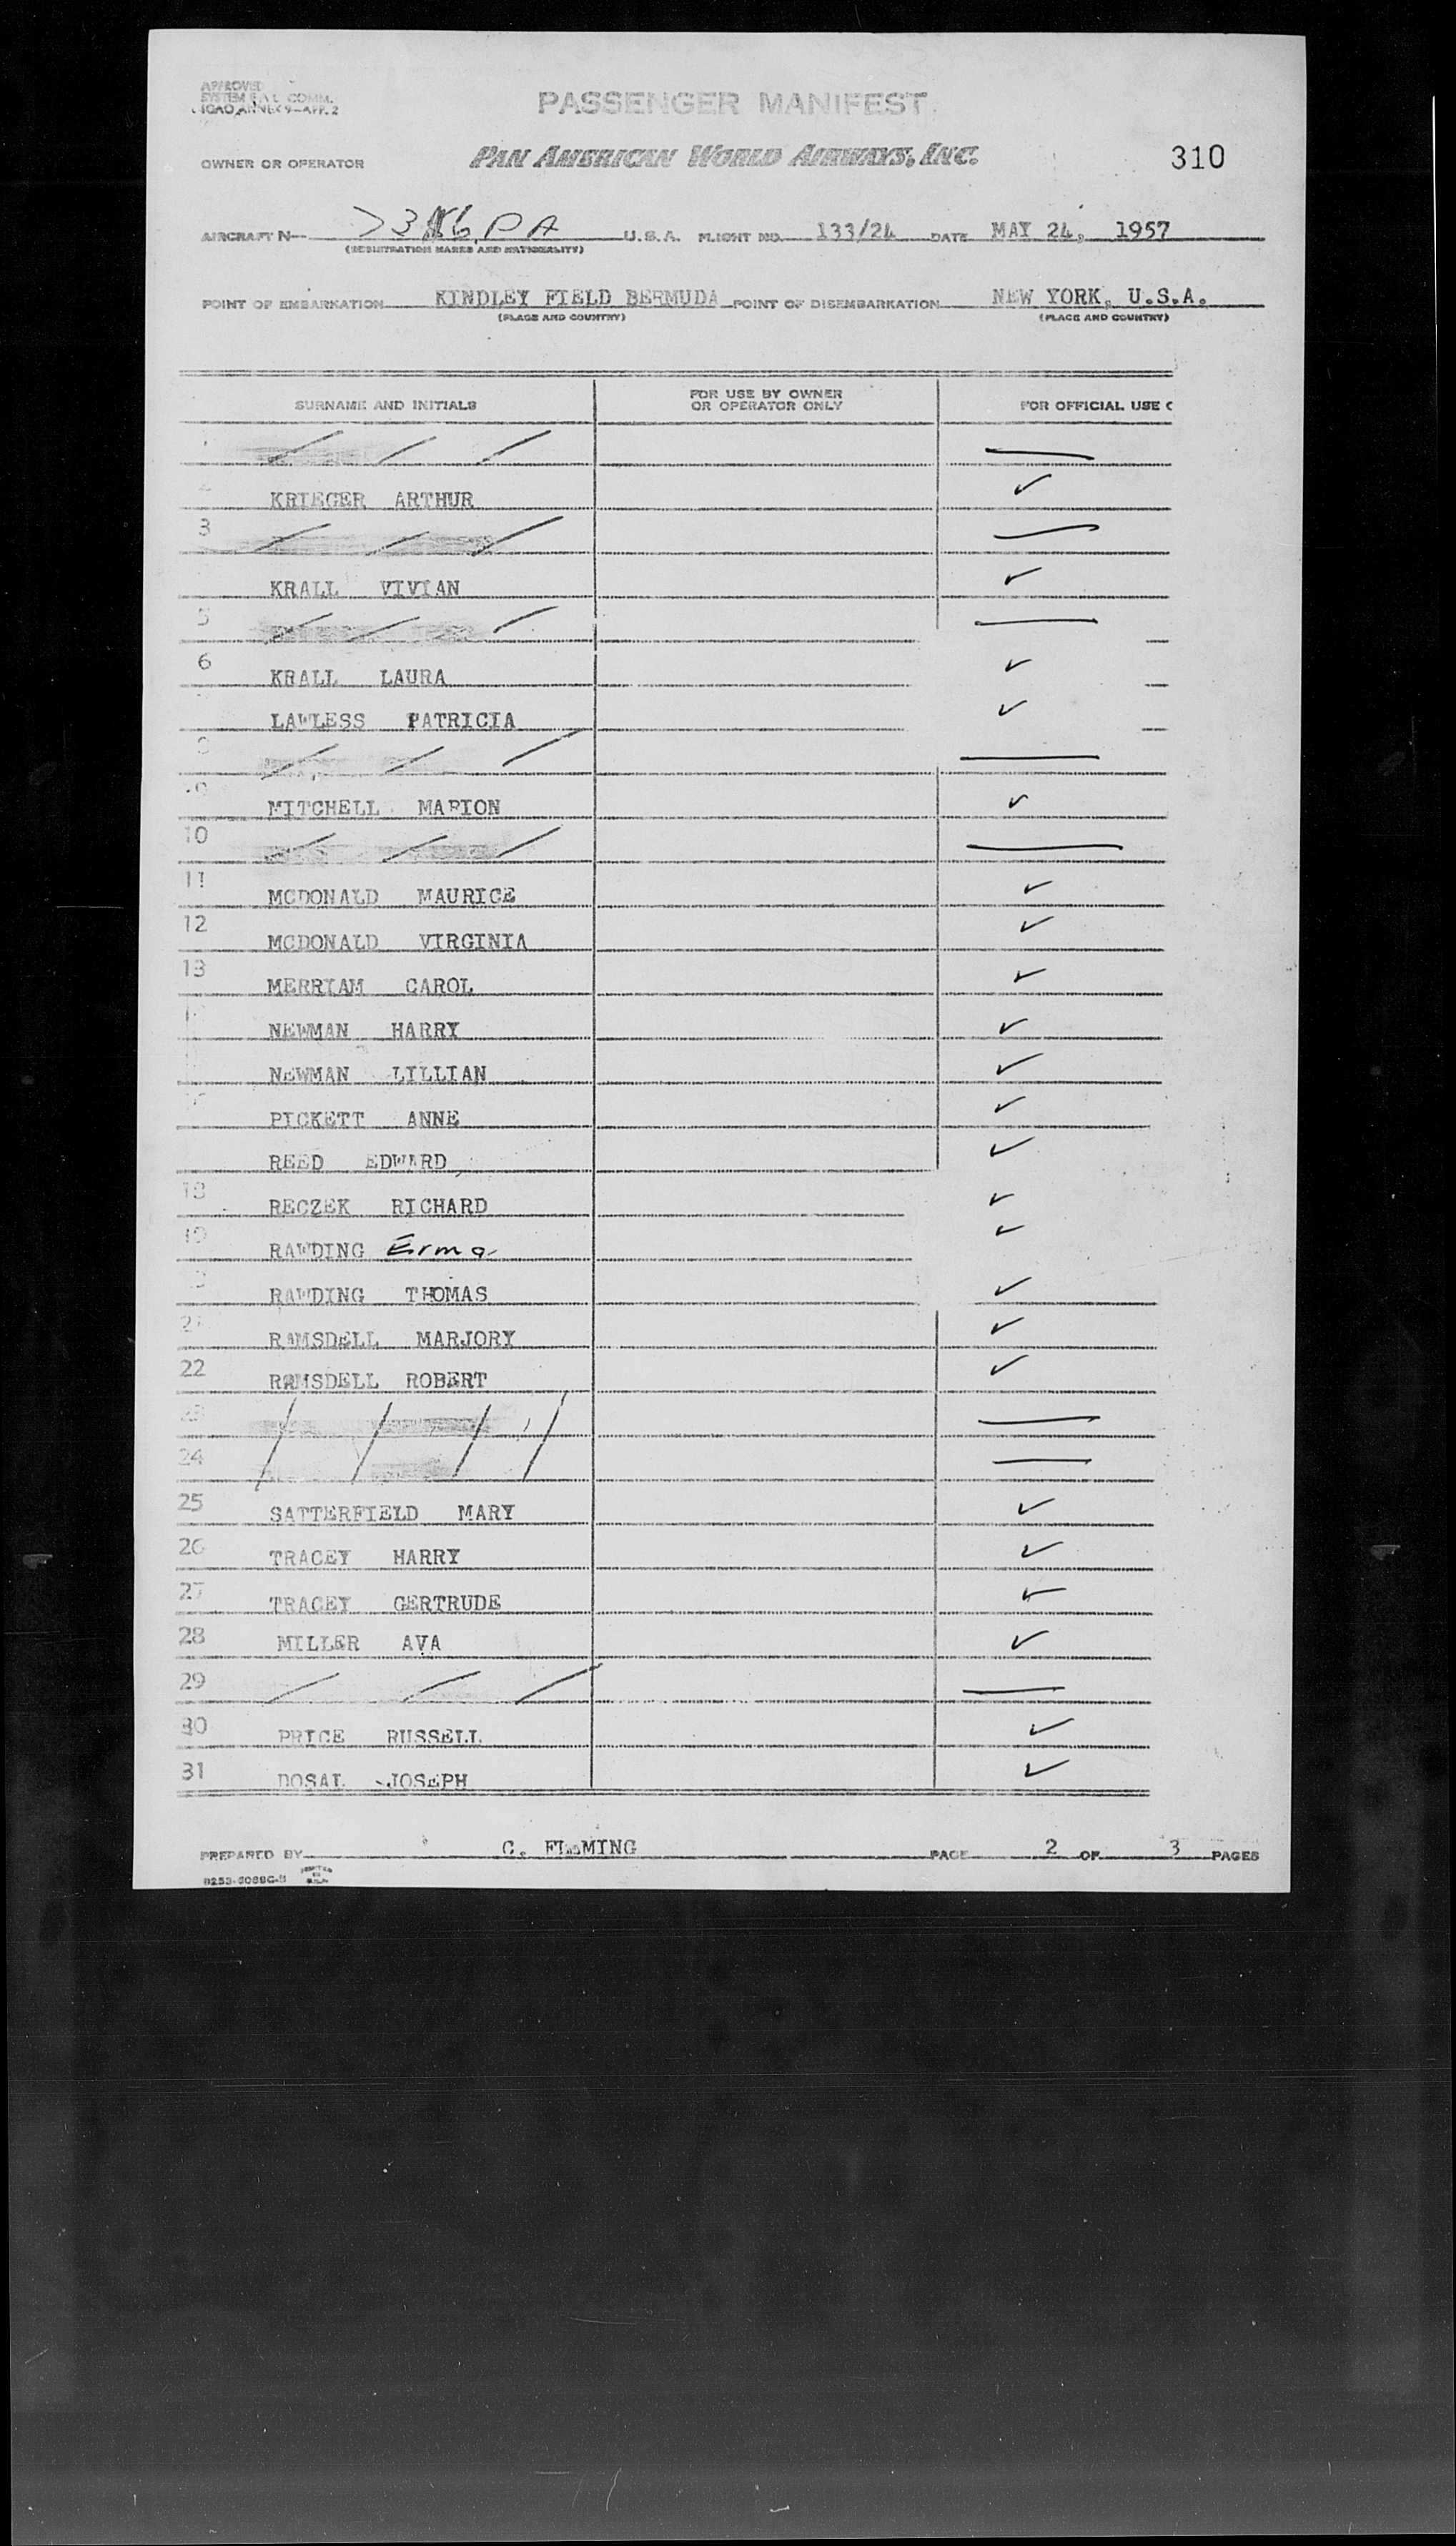 APPROVED
SYSTEM COMM.
ICAO ANNEX 9-APP. 2
PASSENGER MANIFEST
OWNER OR OPERATOR PAN AMERICAN WORLD AIRWAYS, INC. 310
AIRCRAFT N- PA U.S.A. FLIGHT NO. 133/24 DATE MAY 24, 1957
(REGISTRATION MARKS AND NATIONALITY)
POINT OF EMBARKATION KINDLEY FIELD BERMUDA POINT OF DISEMBARKATION NEW YORK, U.S.A.
(PLACE AND COUNTRY) (PLACE AND COUNTRY)
SURNAME AND INITIALS FOR USE BY OWNER OR OPERATOR ONLY FOR OFFICIAL USE
KRIEGER ARTHUR
3
KRALL VIVIAN
5
6 KRALL LAURA
LAWLESS PATRICIA
8
9 MITCHELL MARION
10
11 MCDONALD MAURICE
12 MCDONALD VIRGINIA
13 MERRIAM CAROL
NEWMAN HARRY
NEWMAN LILLIAN
PICKETT ANNE
REED EDWARD
18 RECZEK RICHARD
19 RAWDING Erma
RAWDING THOMAS
21 RAMSDELL MARJORY
22 RAMSDELL ROBERT
23
24
25 SATTERFIELD MARY
26 TRACEY HARRY
27 TRACEY GERTRUDE
28 MILLER AVA
29
30 PRICE RUSSELL
31 DOSAL JOSEPH
PREPARED BY C. FLEMING PAGE 2 OF 3 PAGES